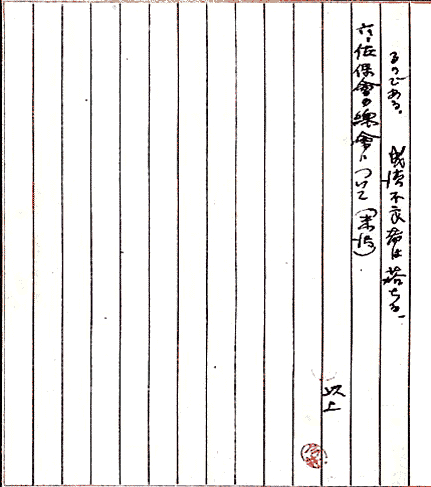 るのである。 成績不良者は落ちる。
六、依保會の總會について
以上